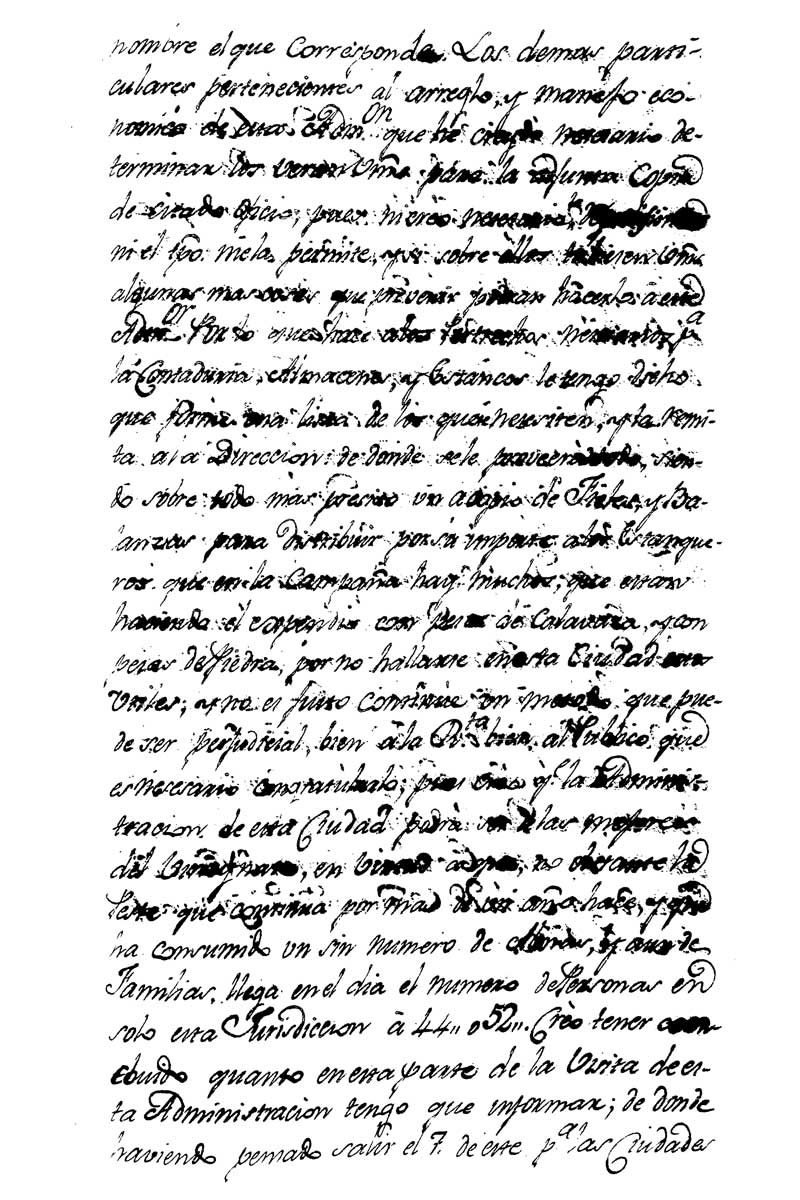 nombre el que Corresponde. Los demas parti-
culares pertenecientes al arreglo, y manejo eco-
nomico de esta Adm.on que he creido necesario de-
terminar los veran Vms. para la adjunta Copia
de citado oficio, pues ni creo necesario
ni el tpo. me la permite, y si sobre ellos tubiesen Vms.
algunas mas cosas que prevenir podran hacerlo à este
Adm.or Por lo que hace a los Pertrechos necesarios p.a
la Contaduria, Almacenes, y Estancos le tengo dicho
que forme una lista de los que necesiten, y la remi-
ta a la Direccion: de donde se le proveerà de todo, sien-
do sobre todo mas preciso un acopio de Fieles, y Ba-
lanzas para distribuir por su importe a los Estanque-
ros que en la Campaña hay muchos, que estan
haciendo el expendio con pesas de Calavaza, y con
pesas de Piedra, por no hallarse en esta Ciudad estos
Utiles; y no es justo continue un metodo que pue-
de ser perjudicial, bien à la R.ta bien al Publico que
es necesario congratularlo; pues creo q.e la Adminis-
tracion de esta Ciudad podrà ser de las mejores
del Virreynato, en virtud à que, no obstante la
Peste que continùa por mas de un año hace, y que
ha consumido un sin numero de y aun de
Familias, llega en el dia el numero de Personas en
solo esta Jurisdiccion à 44,, o 52,,. Creo tener con-
cluido quanto en esta parte de la Visita de es-
ta Administracion tengo que informar; de donde
haviendo pensado salir el 7. de este p.a las Ciudades